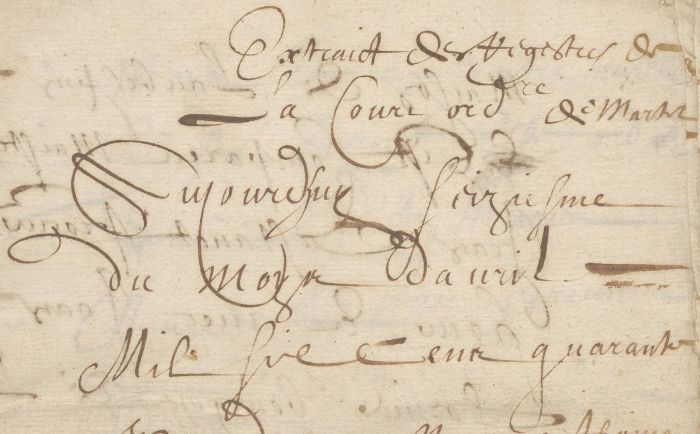 Extraict des Regestres de
la Cour ord^re de Martel
Aujourdhuy seiziesme
du moys dauril
Mil six cens quarante